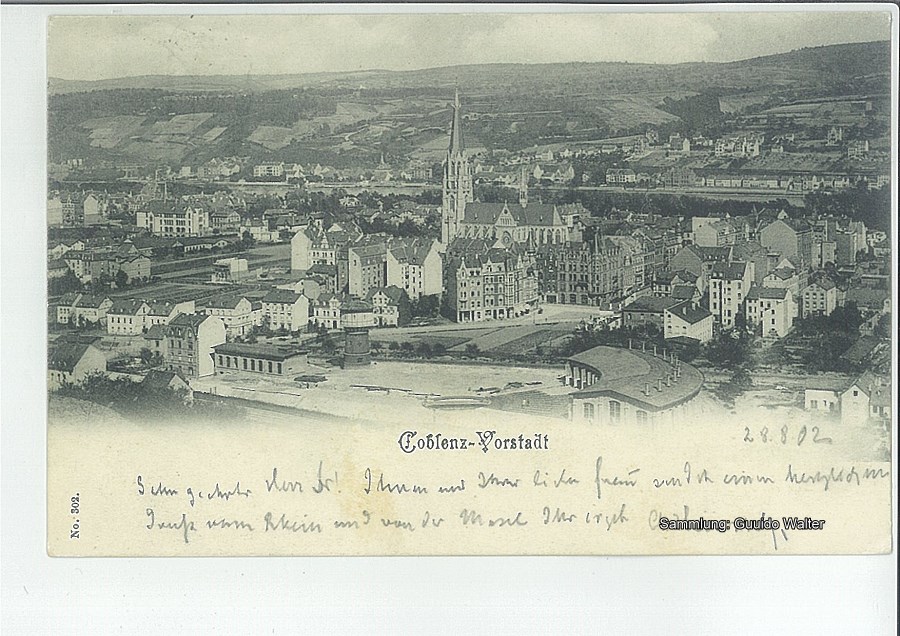 Coblenz-Vorstadt
28.8.02
No. 302.
Sehr geehrter Herr Dr! Ihnen und Ihrer lieben Frau sendet einen herzlichen
Gruß vom Rhein und von der Mosel Ihr ergeb
Sammlung: Guuido Walter